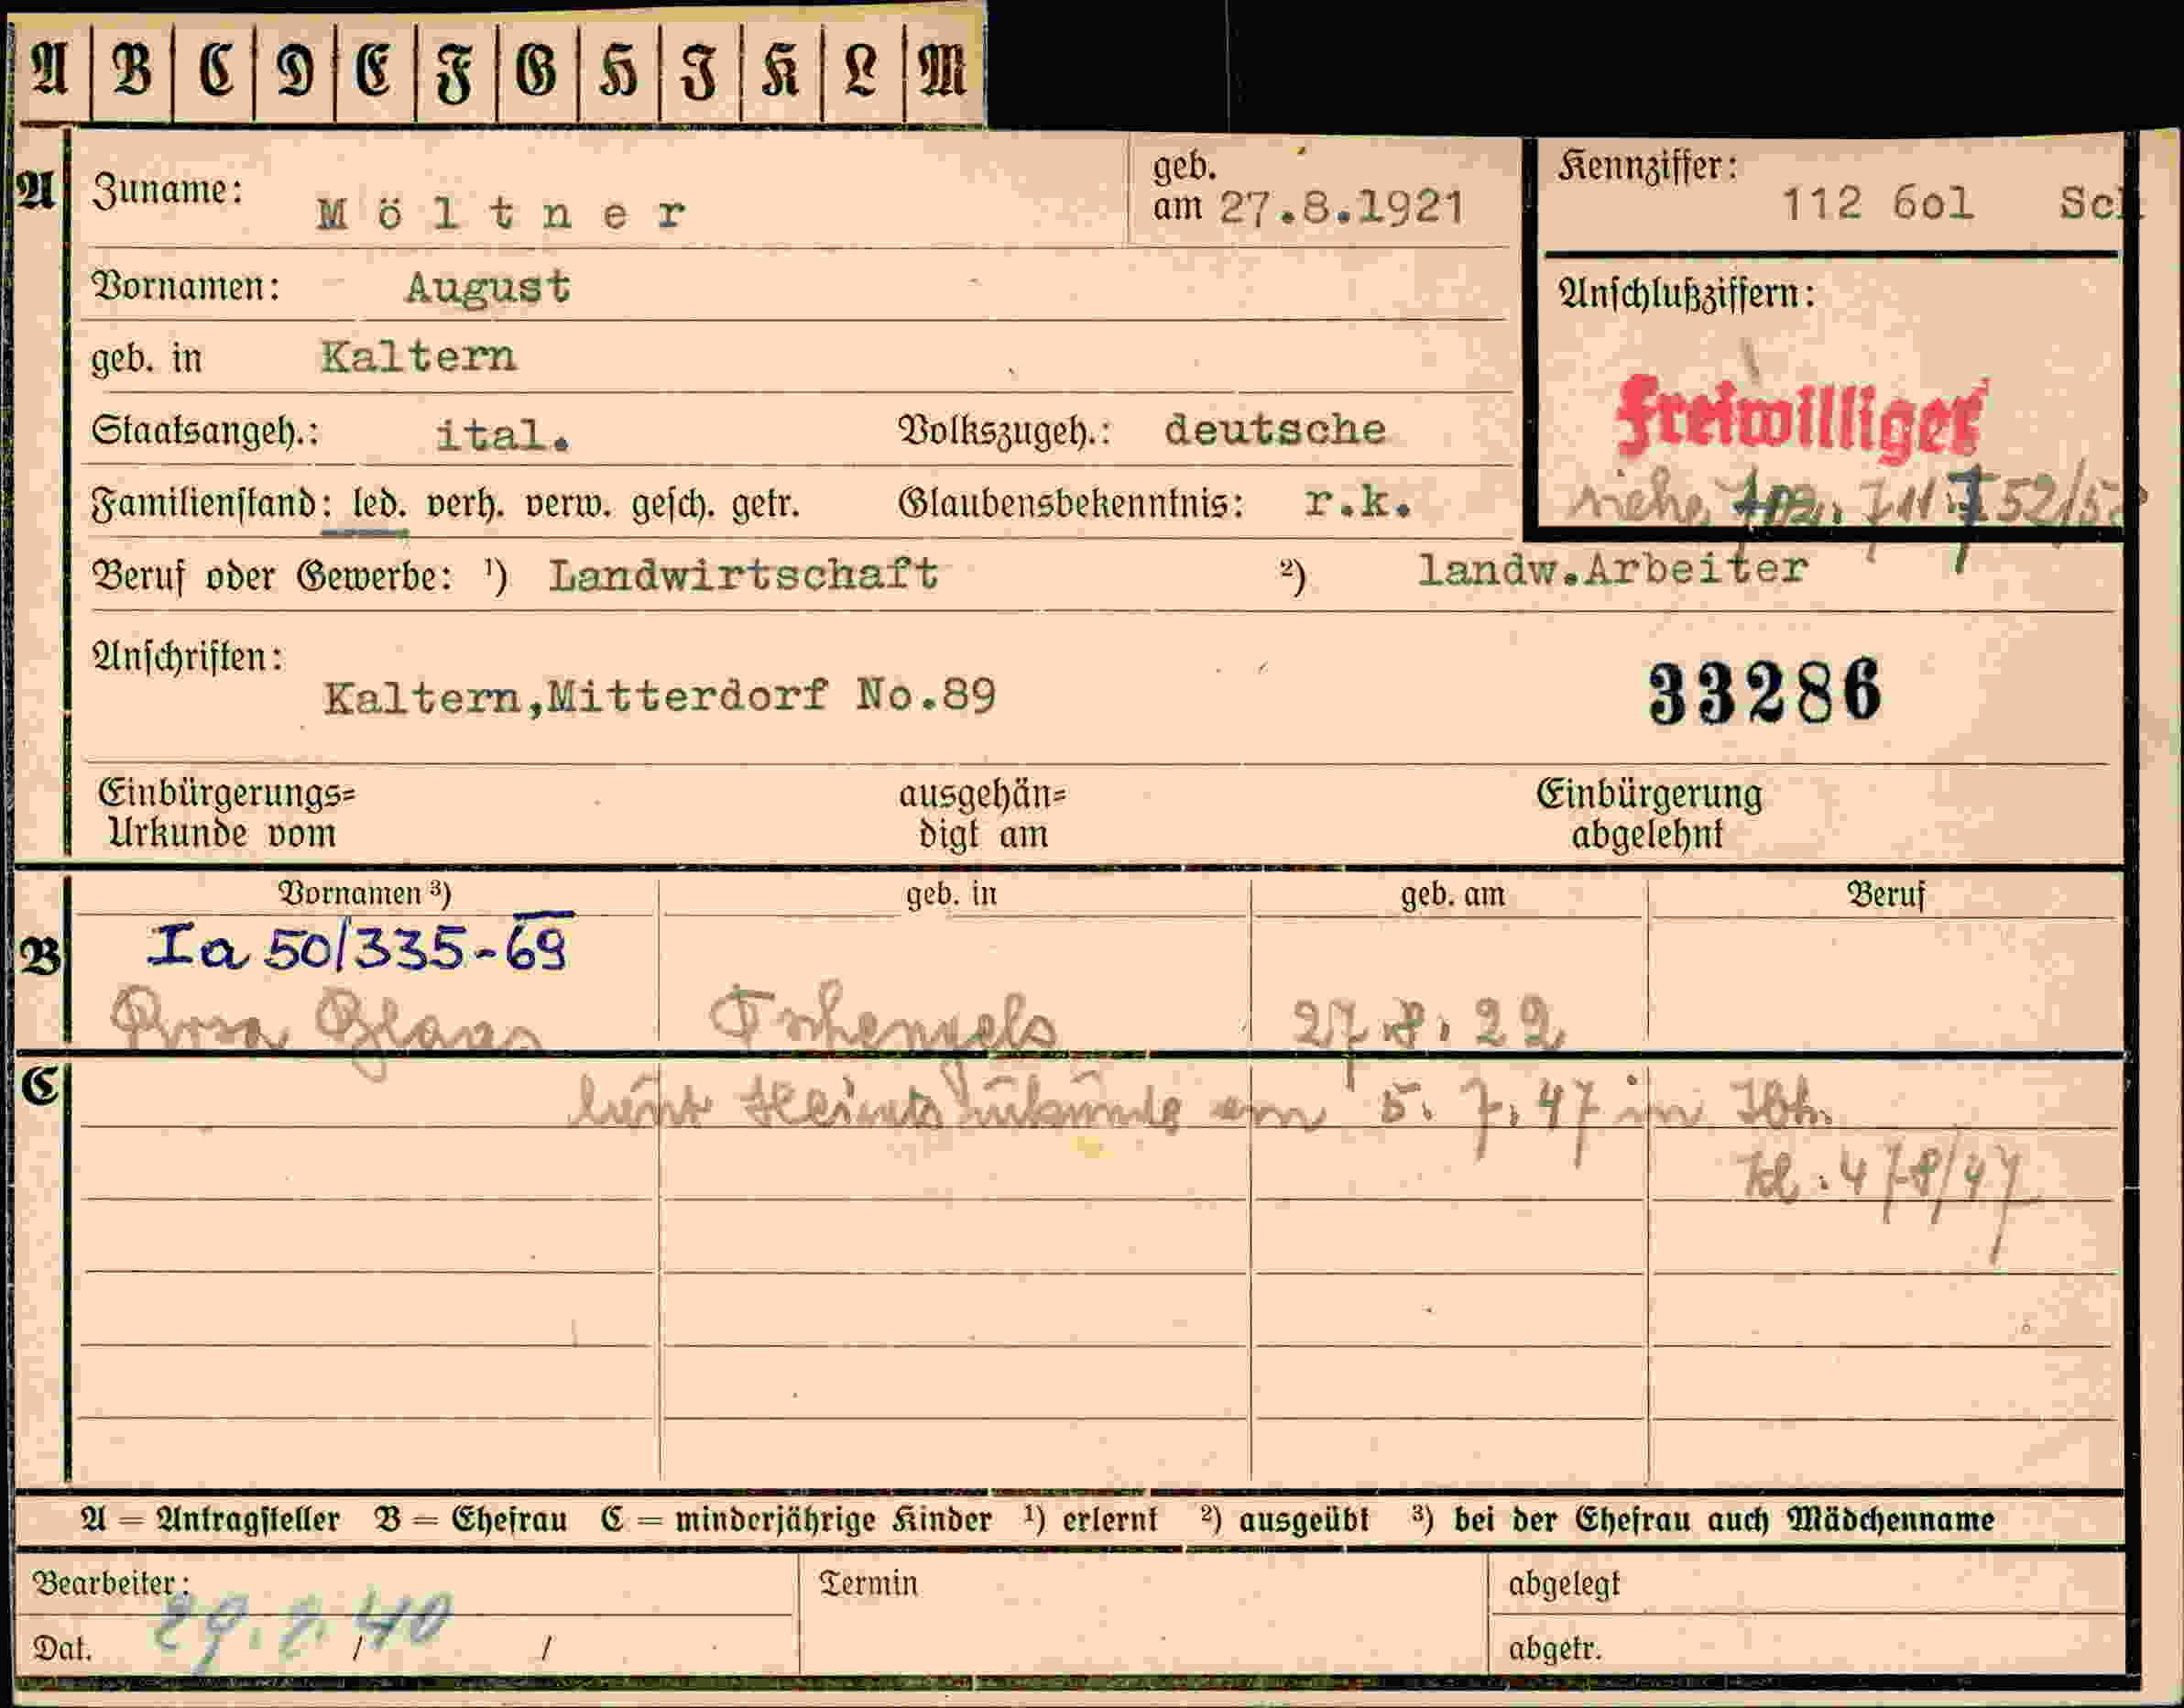 A B C D E F G H I K L M
A Zuname: Möltner geb. am 27.8.1921 Kennziffer: 112 6o1 Sch
Vornamen: August Anschlußziffern:
geb. in Kaltern
Staatsangeh.: ital. Volkszugeh.: deutsche Freiwilliger
Familienstand: led. verh. verw. gesch. getr. Glaubensbekenntnis: r.k. siehe 52/
Beruf oder Gewerbe: ¹) Landwirtschaft ²) landw.Arbeiter
Anschriften:
Kaltern,Mitterdorf No.89 33286
Einbürgerungs= ausgehän= Einbürgerung
Urkunde vom digt am abgelehnt
Vornamen ³) geb. in geb. am Beruf
B Ia 50/335-69
Rosa Blaas Tschengels 27.8.22
C
laut Heiratsurkunde am 5.7.47 in
478/47
A = Antragsteller B = Ehefrau C = minderjährige Kinder ¹) erlernt ²) ausgeübt ³) bei der Ehefrau auch Mädchenname
Bearbeiter: Termin abgelegt
Dat. / / abgetr.